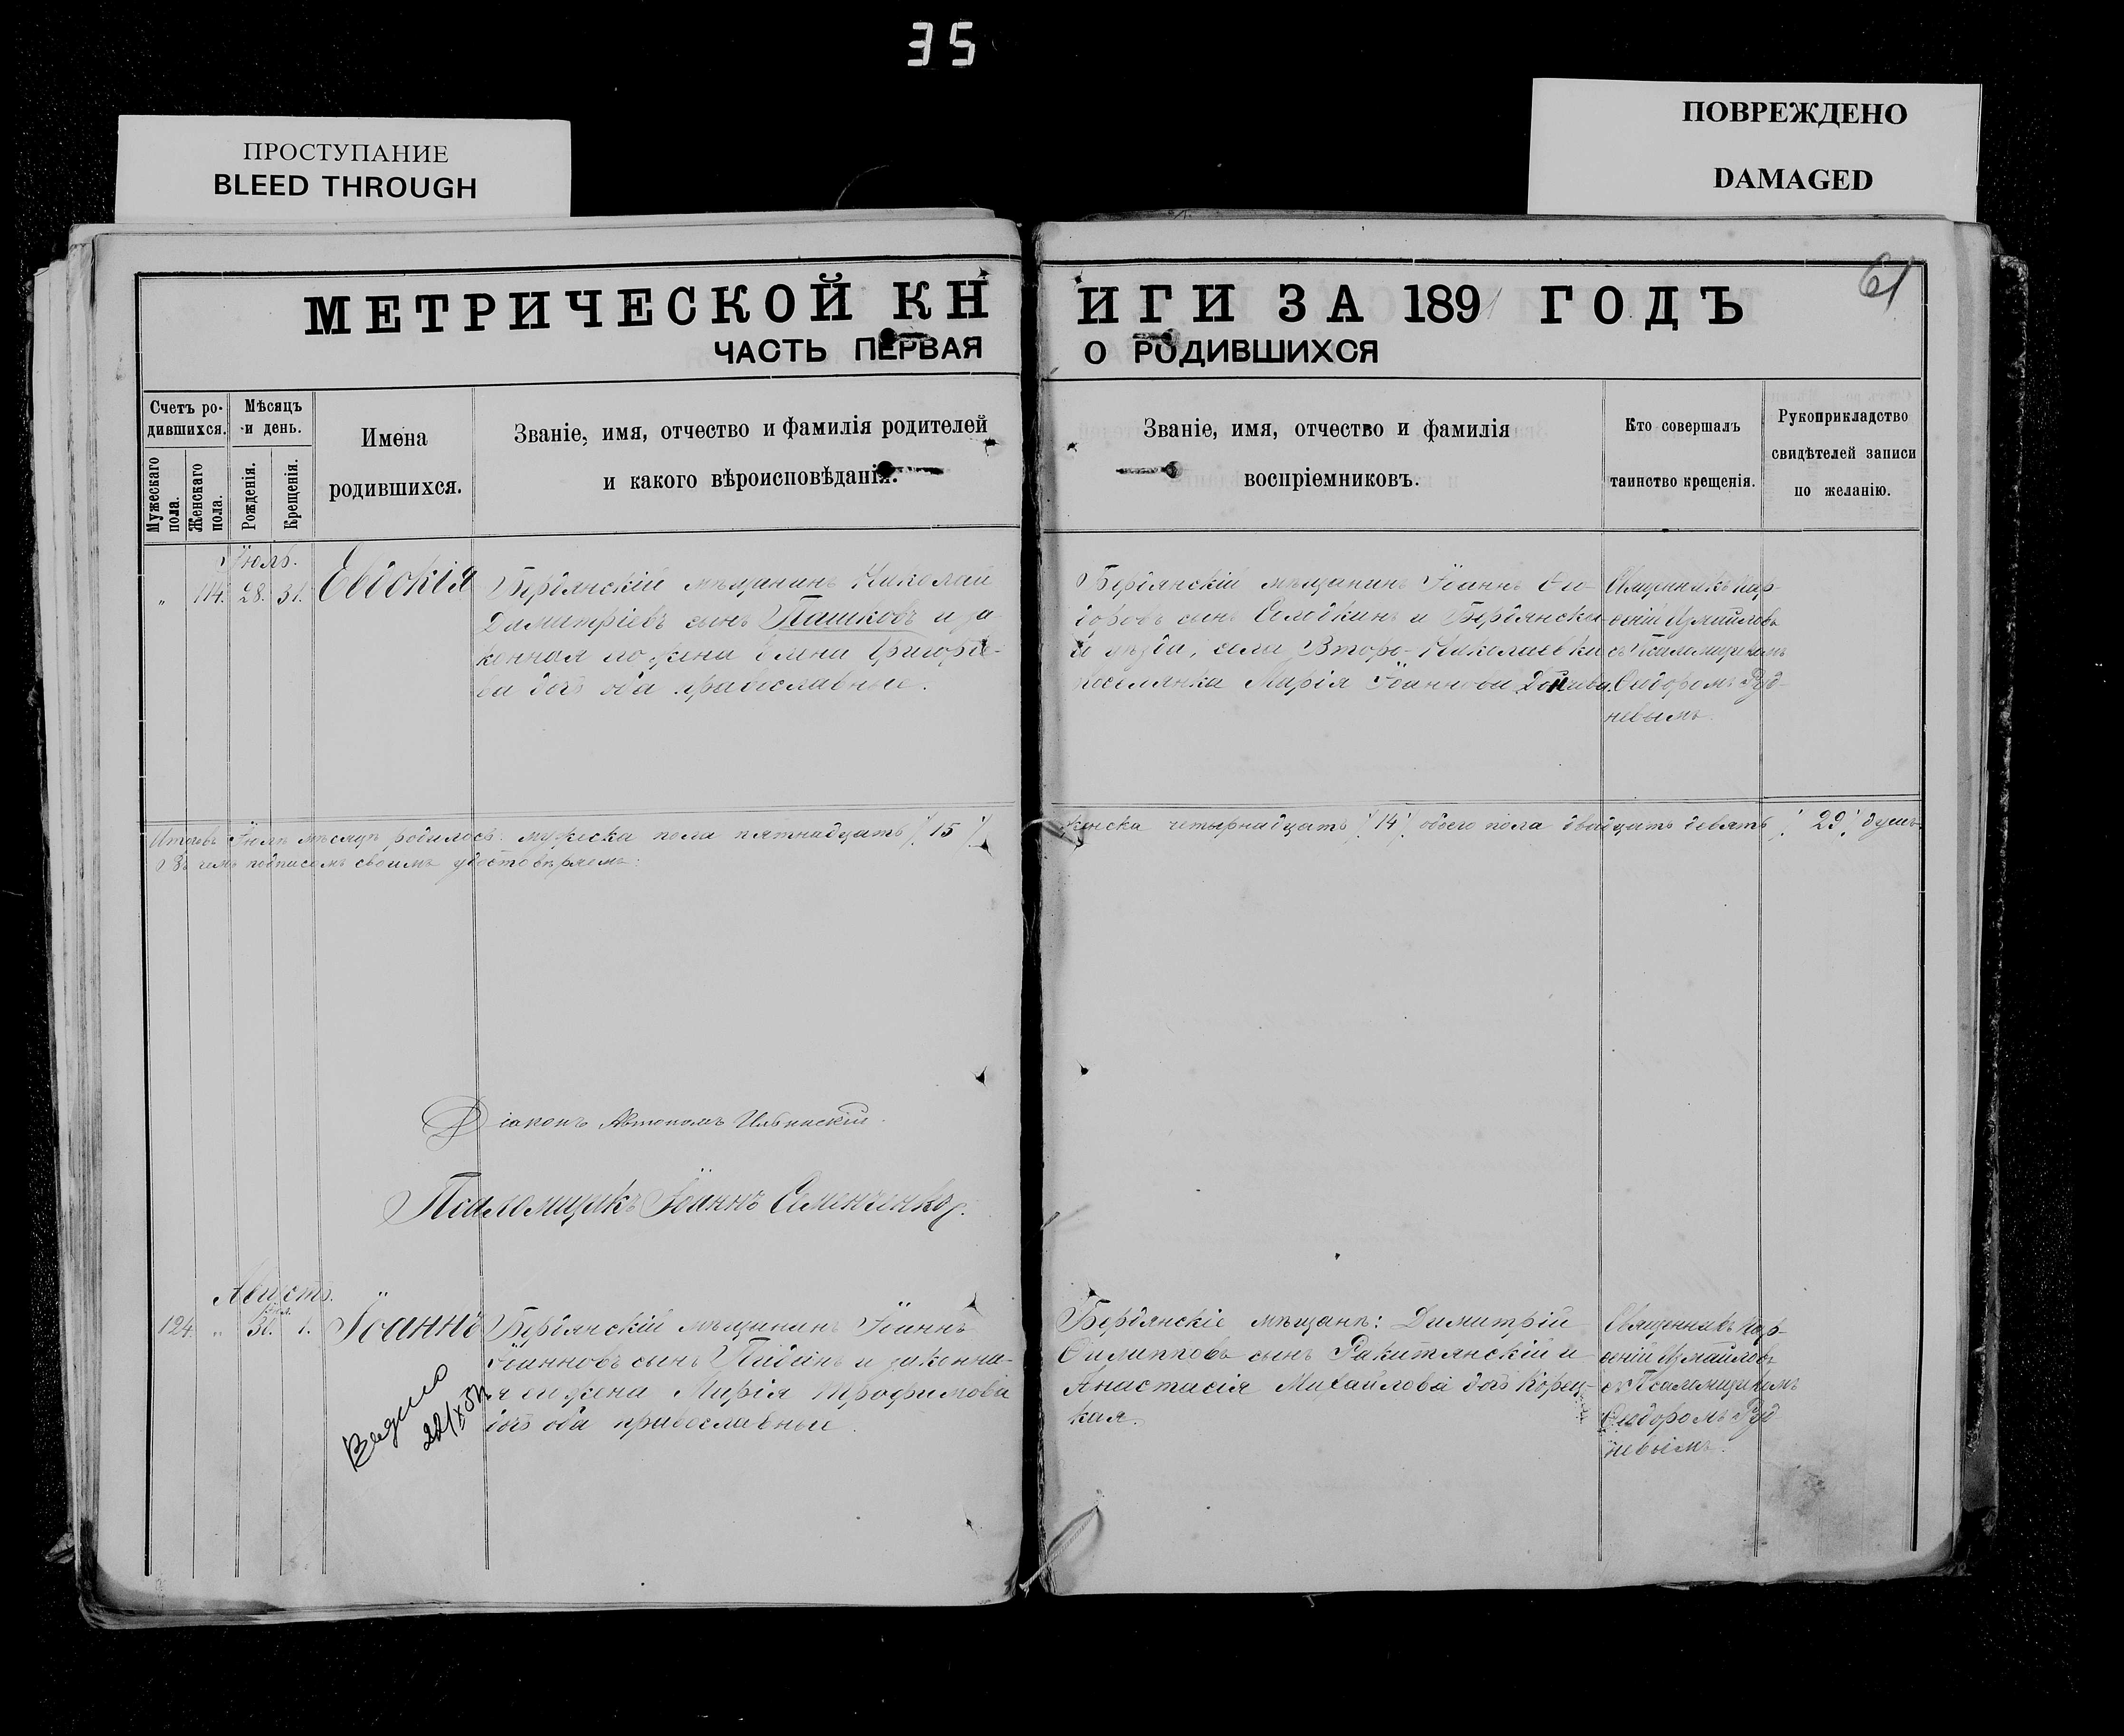 35
ПРОСТУПАНИЕ
BLEED THROUGH
ПОВРЕЖДЕНО
DAMAGED
61
МЕТРИЧЕСКОЙ КН
ИГИ ЗА 1891 ГОДЪ
ЧАСТЬ ПЕРВАЯ
О РОДИВШИХСЯ
Счетъ ро-
дившихся.
Мужескаго пола.
Женскаго пола.
Мѣсяцъ
и день.
Рожденія.
Крещенія.
Имена
родившихся.
Званіе, имя, отчество и фамилія родителей
и какого вѣроисповѣданія.
Званіе, имя, отчество и фамилія
воспріемниковъ.
Кто совершалъ
таинство крещенія.
Рукоприкладство
свидѣтелей записи
по желанію.
Іюль.
" 114. 28. 31. Евдокія
Бердянскій мѣщанинъ Николай
Димитріевъ сынъ Пашковъ и за-
конная его жена Елена Григорье-
ва дочь оба православные.
Бердянскій мѣщанинъ Іоаннъ Ѳи-
доровъ сынъ Семыкинъ и Бердянска-
го уѣзда, села Второ-Николаевки
поселянка Марія Іоаннова
Священникъ Пар-
ѳеній Измайловъ
съ Псаломщикомъ
Ѳидоромъ Руд-
невымъ.
Итого въ Іюлѣ мѣсяцѣ родилось: мужеска пола пятнадцать /15/
женска четырнадцать /14/ обоего пола двадцать девять /29/ душъ.
Въ чемъ подписомъ своимъ удостовѣряемъ:
Діаконъ Автономъ Ильинскій.
Псаломщикъ Іоаннъ Семенченко.
Августъ.
Іюл.
124. " 31. 1. Іоаннъ
Бердянскій мѣщанинъ Іоаннъ
Іоанновъ сынъ и законна-
я его жена Марія Трофимова
дочь оба православные.
Видно
Бердянскіе мѣщане: Димитрій
Филипповъ сынъ Ракитянскій и
Анастасія Михайлова дочь Корец-
кая.
Священникъ Пар-
ѳеній Измайловъ
съ Псаломщикомъ
Ѳидоромъ Руд
невымъ.